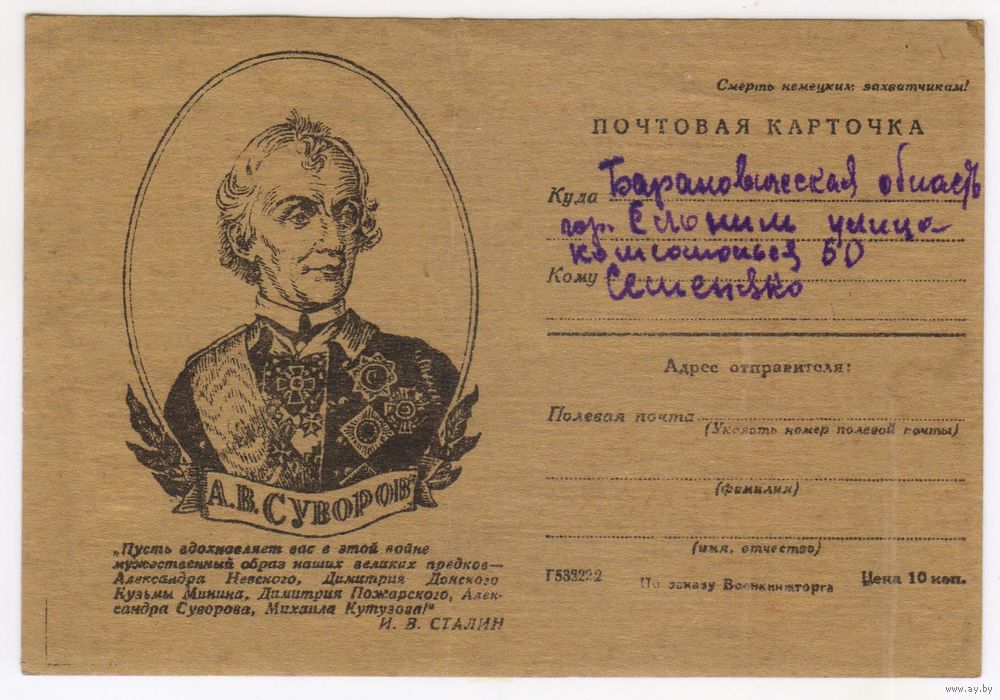 А.В. СУВОРОВ
„Пусть вдохновляет вас в этой войне
мужественный образ наших великих предков—
Александра Невского, Димитрия Донского
Кузьмы Минина, Димитрия Пожарского, Алек-
сандра Суворова, Михаила Кутузова!"
И. В. СТАЛИН
Смерть немецким захватчикам!
ПОЧТОВАЯ КАРТОЧКА
Куда Барановическая область
гор. Слоним улица
50
Кому Семеняко
Адрес отправителя:
Полевая почта
(Указать номер полевой почты)
(фамилия)
(имя, отчество)
Г533232 По заказу Военкнижторга Цена 10 коп.
www.ay.by